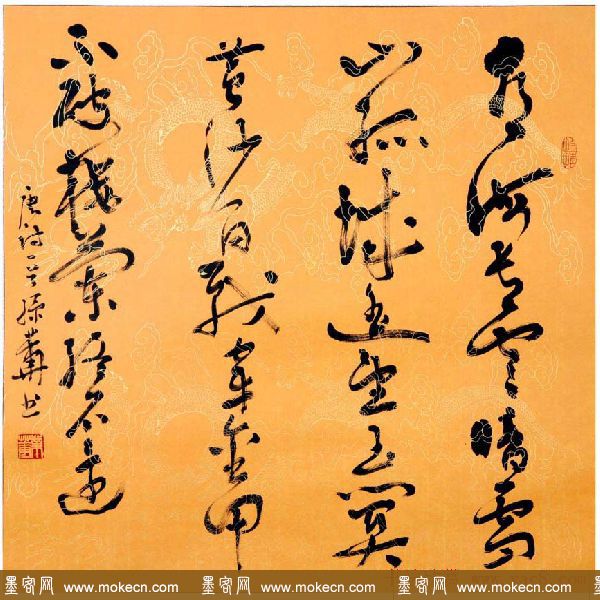 青海长云暗雪
山孤城遥望玉门关
黄沙百战穿金甲
不破楼兰终不还
唐诗一首 书
墨客网 www.mokecn.com 墨客网 www.mokecn.com 墨客网 www.mokecn.com 墨客网